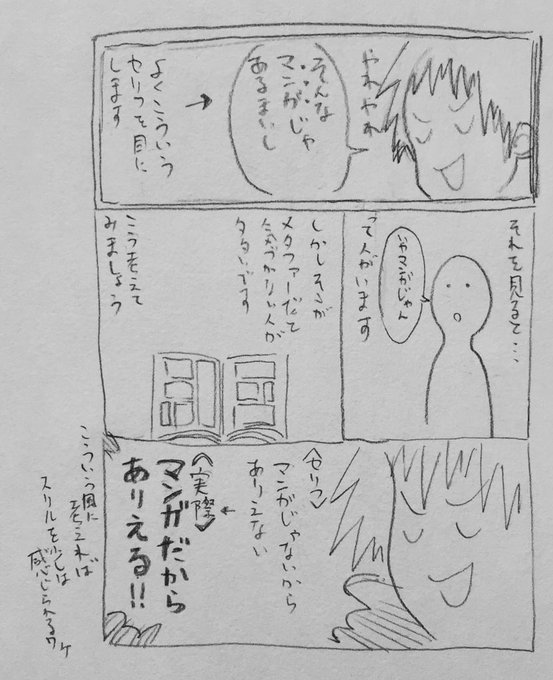 やれやれ
そんな
マンガじゃ
あるまいし
よくこういう
セリフを目に
します
それを見ると…
いやマンガじゃん
って人がいます
しかしそこが
メタファーだって
気づかない人が
タタいです
こう考えて
みましょう
〈セリフ〉
マンガじゃないから
ありえない
〈実際〉
マンガだから
ありえる!!
こういう風に
考えれば
スリルを少しは
感じられるワケ